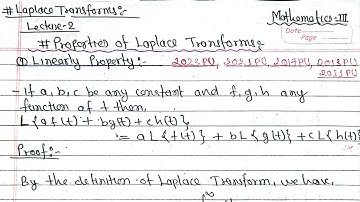 # Laplace Transforms:-
Mathematics-III
Lecture-2
Date
Page
# Properties of Laplace Transforms:-
(1) Linearly Property:- 2023PU, 2021PU, 2017PU, 2013PU
2011PU
- If a, b, c be any constant and f, g, h any
function of t then,
L{af(t) + bg(t) + ch(t)}
= aL{f(t)} + bL{g(t)} + cL{h(t)}
Proof:-
By the definition of Laplace Transform, we have,